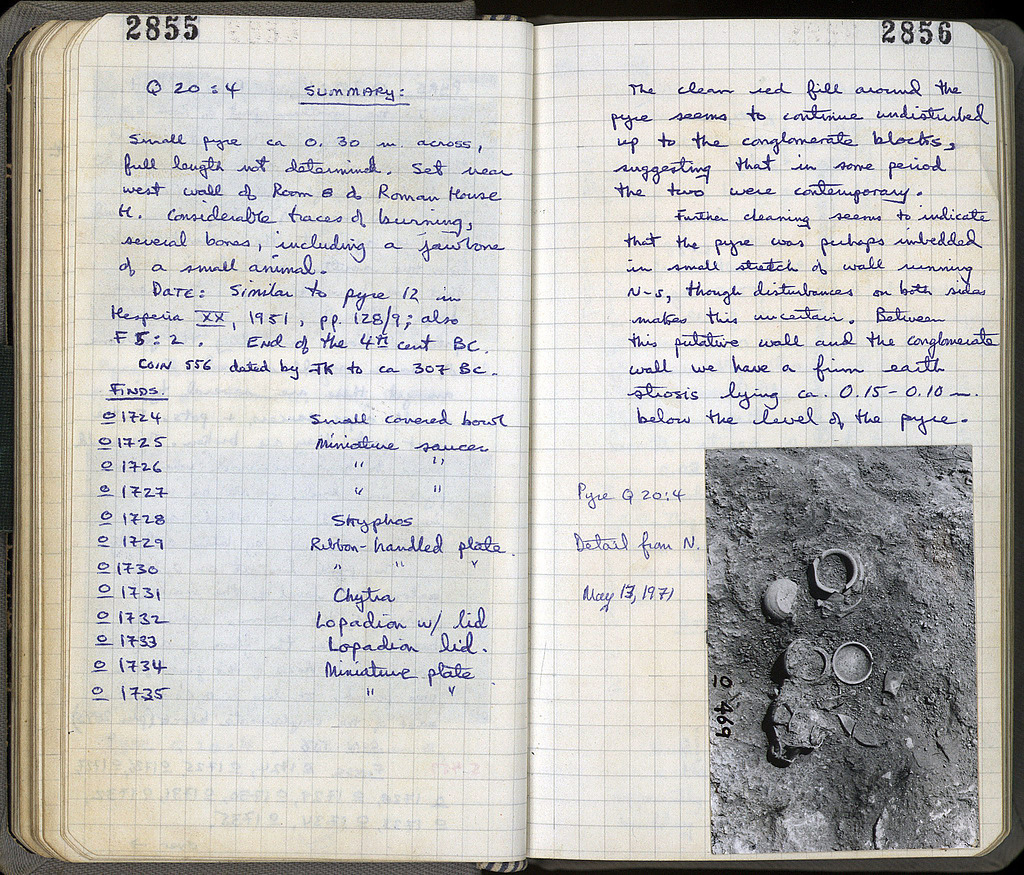 2855
Q 20:4 SUMMARY:
Small pyre ca 0.30 m. across,
full length not determined. Set near
west wall of Room 8 of Roman House
H. Considerable traces of burning,
several bones, including a jawbone
of a small animal.
DATE: Similar to pyre 12 in
Hesperia XX, 1951, pp. 128/9; also
F 5:2. End of the 4th cent BC.
COIN 556 dated by JK to ca 307 BC.
FINDS.
O 1724 Small covered bowl
O 1725 Miniature saucer
O 1726 " "
O 1727 " "
O 1728 Skyphos
O 1729 Ribbon-handled plate.
O 1730 " " "
O 1731 Chytra
O 1732 Lopadion w/ lid
O 1733 Lopadion lid.
O 1734 Miniature plate
O 1735 " "
2856
The clean red fill around the
pyre seems to continue undisturbed
up to the conglomerate blocks,
suggesting that in some period
the two were contemporary.
Further cleaning seems to indicate
that the pyre was perhaps imbedded
in small stretch of wall running
N-S, though disturbances on both sides
makes this uncertain. Between
this putative wall and the conglomerate
wall we have a firm earth
strosis lying ca. 0.15-0.10 m.
below the level of the pyre.
Pyre Q 20:4
Detail from N.
May 13, 1971
O 469